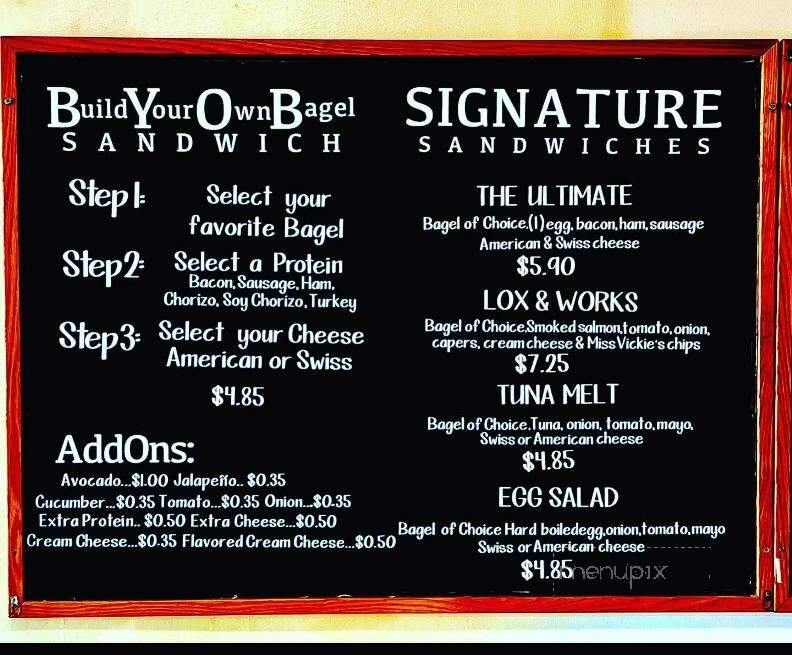 Build Your Own Bagel
SANDWICH
Step 1:
Select your
favorite Bagel
Step 2:
Select a Protein
Bacon, Sausage, Ham,
Chorizo, Soy Chorizo, Turkey
Step 3:
Select your Cheese
American or Swiss
$4.85
AddOns:
Avocado...$1.00 Jalapeño.. $0.35
Cucumber...$0.35 Tomato...$0.35 Onion...$0.35
Extra Protein.. $0.50 Extra Cheese...$0.50
Cream Cheese...$0.35 Flavored Cream Cheese...$0.50
SIGNATURE
SANDWICHES
THE ULTIMATE
Bagel of Choice.(1)egg, bacon,ham,sausage
American & Swiss cheese
$5.90
LOX & WORKS
Bagel of Choice.Smoked salmon,tomato,onion,
capers, cream cheese & Miss Vickie's chips
$7.25
TUNA MELT
Bagel of Choice.Tuna, onion, tomato,mayo,
Swiss or American cheese
$4.85
EGG SALAD
Bagel of Choice Hard boiledegg,onion,tomato,mayo
Swiss or American cheese
$4.85
menupix